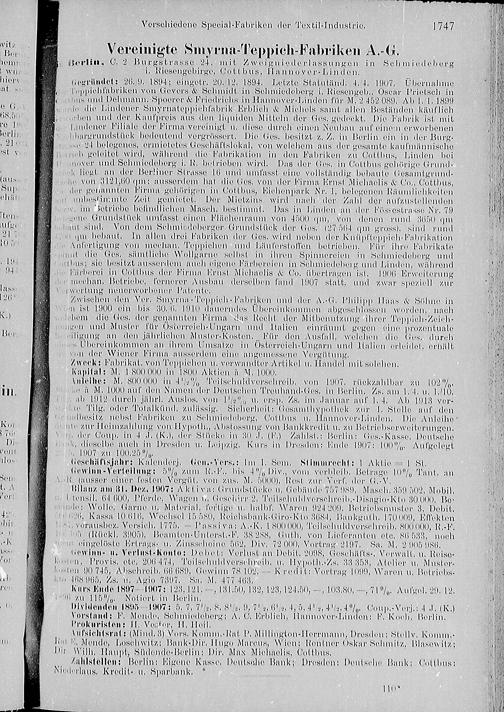 Verschiedene Special-Fabriken der Textil-Industrie. 1747
Vereinigte Smyrna-Teppich-Fabriken A.-G.
Berlin, C. 2 Burgstrasse 24, mit Zweigniederlassungen in Schmiedeberg
i. Riesengebirge, Cottbus, Hannover-Linden.
Gegründet: 26./9. 1894; eingetr. 20./12. 1894. Letzte Statutänd. 4./4. 1907. Übernahme
Teppichfabriken von Gevers & Schmidt in Schmiedeberg i. Riesengeb., Oscar Prietsch in
und Dehmann, Spoerer & Friedrichs in Hannover-Linden für M. 2 452 089. Ab 1./1. 1899
die Lindener Smyrnateppichfabrik Erblich & Michels samt allen Beständen käuflich
und der Kaufpreis aus den liquiden Mitteln der Ges. gedeckt. Die Fabrik ist mit
Lindener Filiale der Firma vereinigt u. diese durch einen Neubau auf einem erworbenen
bargrundstück bedeutend vergrössert. Die Ges. besitzt z. Z. in Berlin ein in der Burg-
24 belegenes, ermietetes Geschäftslokal, von welchem aus der gesamte kaufmännische
geleitet wird, während die Fabrikation in den Fabriken zu Cottbus, Linden bei
und Schmiedeberg i. R. betrieben wird. Das der Ges. in Cottbus gehörige Grund-
liegt an der Berliner Strasse 16 und umfasst eine vollständig bebaute Gesamtgrund-
von 3121,60 qm; ausserdem hat die Ges. von der Firma Ernst Michaelis & Co., Cottbus,
der genannten Firma gehörigen in Cottbus, Eichenpark Nr. 1, belegenen Räumlichkeiten
unbestimmte Zeit gemietet. Der Mietzins wird nach der Zahl der aufzustellenden
im Betriebe befindlichen Masch. bestimmt. Das in Linden an der Fössestrasse Nr. 79
Grundstück umfasst einen Flächenraum von 4500 qm, von denen rund 3650 qm
sind. Von dem Schmiedeberger Grundstück der Ges. (27 564 qm gross), sind rund
qm bebaut. In allen drei Fabriken der Ges. wird neben der Knüpfteppich-Fabrikation
Anfertigung von mechan. Teppichen und Läuferstoffen betrieben. Für ihre Fabrikate
die Ges. sämtliche Wollgarne selbst in ihren Spinnereien in Schmiedeberg und
sie besitzt ausserdem auch eigene Färbereien in Schmiedeberg und Linden, während
Färberei in Cottbus der Firma Ernst Michaelis & Co. übertragen ist. 1906 Erweiterung
mechan. Betriebe, fernerer Ausbau derselben fand 1907 statt, und zwar speziell zur
wertung neuerworbener Patente.
Zwischen den Ver. Smyrna-Teppich-Fabriken und der A.-G. Philipp Haas & Söhne in
ist 1900 ein bis 30./6. 1910 dauerndes Übereinkommen abgeschlossen worden, nach
dem die Ges. der genannten Firma das Recht der Mitbenutzung ihrer Teppich-Zeich-
und Muster für Österreich-Ungarn und Italien einräumt gegen eine prozentuale
an den jährlichen Muster-Kosten. Für den Ausfall, welchen die Ges. durch
Übereinkommen an ihrem Umsatze in Österreich-Ungarn und Italien erleidet, erhält
von der Wiener Firma ausserdem eine angemessene Vergütung.
Zweck: Fabrikat. von Teppichen u. verwandter Artikel u. Handel mit solchen.
Kapital: M. 1 800 000 in 1800 Aktien à M. 1000.
Anleihe: M. 800 000 in 4½% Teilschuldverschreib. von 1907, rückzahlbar zu 102%,
à M. 1000 auf den Namen der Deutschen Treuhand-Ges. in Berlin. Zs. am 1./4. u. 1./10.
ab 1912 durch jährl. Auslos. von 1½% u. ersp. Zs. im Januar auf 1./4. Ab 1913 ver-
Tilg. oder Totalkünd. zulässig. Sicherheit: Gesamthypothek zur I. Stelle auf den
nebst Fabriken zu Schmiedeberg, Cottbus u. Hannover-Linden. Die Anleihe
zur Heimzahlung von Hypoth., Abstossung von Bankkredit u. zu Betriebserweiterungen.
der Coup. in 4 J. (K.), der Stücke in 30 J. (F.) Zahlst.: Berlin: Ges.-Kasse, Deutsche
dieselbe auch in Dresden u. Leipzig. Kurs in Dresden: Ende 1907: 100%. Aufgelegt
1907 zu 100.25%.
Geschäftsjahr: Kalenderj. Gen.-Vers.: Im I. Sem. Stimmrecht: 1 Aktie = 1 St.
Gewinn-Verteilung: 5% zum R.-F., bis 4% Div., vom verbleib. Betrage 10% Tant. an
(ausser einer festen Vergüt. von zus. M. 5000), Rest zur Verf. der G.-V.
Bilanz am 31. Dez. 1907: Aktiva: Grundstücke u. Gebäude 757 989, Masch. 359 502, Mobil.
Utensil. 64 600, Pferde, Wagen u. Geschirr 2, Teilschuldverschreib.-Disagio-Kto 30 000,
Wolle, Garne u. Material, fertige u. halbf. Waren 924 209, Betriebsmuster 3, Debit.
Kassa 10 610, Wechsel 15 589, Reichsbank-Giro-Kto 3684, Bankguth. 170 009, Effekten
vorausbez. Versich. 1775. — Passiva: A.-K. 1 800 000, Teilschuldverschreib. 800 000, R.-F.
(Rückl. 3905), Beamten-Unterst.-F. 38 288, Guth. von Lieferanten etc. 86 533, noch
eingelöste Ertrags- u. Zinsscheine 562, Div. 72 000, Vortrag 2197. Sa. M. 2 905 986.
Gewinn- u. Verlust-Konto: Debet: Verlust an Debit. 2098, Geschäfts-, Verwalt. u. Reise-
Provis. etc. 206 474, Teilschuldverschreib.- u. Hypoth.-Zs. 33 353, Atelier u. Muster-
90 745, Abschreib. 66 689, Gewinn 78 102. — Kredit: Vortrag 1099, Waren u. Betriebs-
468 965, Zs. u. Agio 7397. Sa. M. 477 463.
Kurs Ende 1897—1907: 123, 121, —, 131.50, 132, 123, 124.50, —, 103.80, —, 71%. Aufgel. 29./12.
zu 115%. Notiert in Berlin.
Dividenden 1895—1907: 5, 7, 7½, 8, 8½, 9, 7½, 6½, 4, 5, 4½, 4½, 4%. Coup.-Verj.: 4 J. (K.)
Vorstand: F. Mende, Schmiedeberg; A. C. Erblich, Hannover-Linden; F. Koch, Berlin.
Prokuristen: H. Vector, I. Heil.
Aufsichtsrat: (Mind. 3) Vors. Komm.-Rat P. Millington-Herrmann, Dresden; Stellv. Komm.-
E. Mende, Loschwitz; Bank-Dir. Hugo Marcus, Wien; Rentner Oskar Schmitz, Blasewitz;
Dir. Wilh. Haupt, Südende-Berlin; Dir. Max Michaelis, Cottbus.
Zahlstellen: Berlin: Eigene Kasse, Deutsche Bank; Dresden: Deutsche Bank; Cottbus:
Niederlaus. Kredit- u. Sparbank.
110*